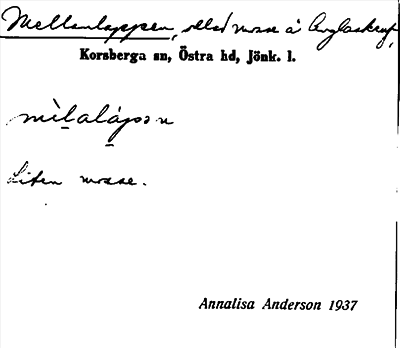 Mellanlappen, mosse å
Korsberga sn, Östra hd, Jönk. l.
mìlaláp:ən
Liten mosse.
Annalisa Anderson 1937